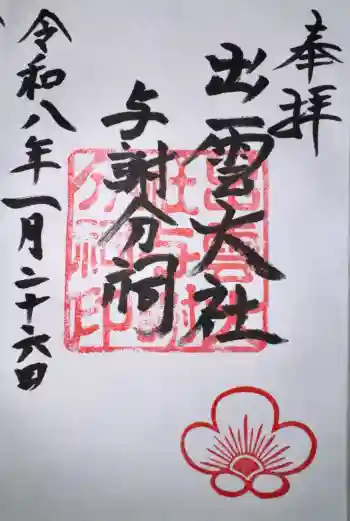 奉拝
出雲大社
与謝分祠
令和八年一月二十六日